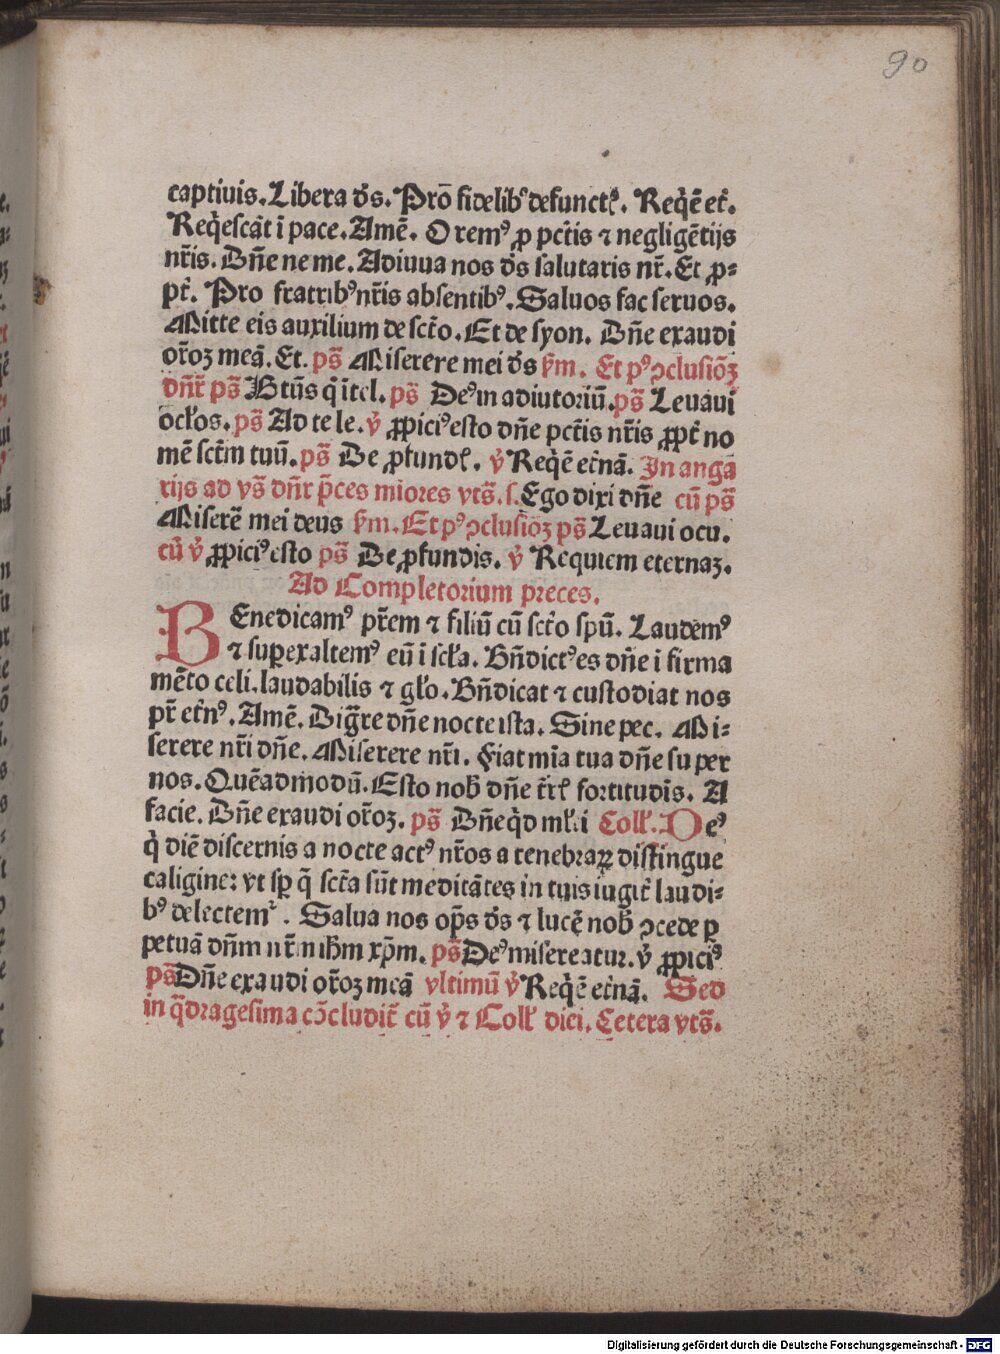 90
captiuis. Libera ds̄. Pro fidelibꝰ defunctꝭ. Reqͥē et̄.
Reqͥescāt ī pace. Amē. Oremꝰ ꝓ pctīs ⁊ negligētijs
nr̄is. Dn̄e ne me. Adiuua nos ds̄ salutaris nr̄. Et ꝓ⸗
pt̄. Pro fratribꝰ nr̄is absentibꝰ. Saluos fac seruos.
Mitte eis auxilium de sct̄o. Et de syon. Dn̄e exaudi
or̄oꝫ meā. Et. ps̄ Miserere mei ds̄ ẜm. Et pꝰ ꝯclusiōꝫ
dn̄r̄ ps̄ Bt̄us qͥ ītel. ps̄ Deꝰ in adiutoriū. ps̄ Leuaui
ocl̄os. ps̄ Ad te le. v̄ ꝓpiciꝰ esto dn̄e pct̄is nr̄is ꝓpt̄ no
mē sct̄m tuū. ps̄ De ꝓfundꝭ. v̄ Reqͥē et̄nā. In anga
rijs ad vs̄ dn̄r p̄ces miores vts̄. s. Ego dixi dn̄e cū ps̄
Miserē mei deus ẜm. Et pꝰ ꝯclusiōꝫ ps̄ Leuaui ocu.
cū v̄ ꝓpiciꝰ esto ps̄ De ꝓfundis. v̄ Requiem eternaꝫ.
Ad Completorium preces.
BEnedicamꝰ pr̄em ⁊ filiū cū sct̄o spū. Laudemꝰ
⁊ suꝑexaltemꝰ eū ī scl̄a. Bn̄dictꝰ es dn̄e i firma
mēto celi. laudabilis ⁊ gl̄o. Bn̄dicat ⁊ custodiat nos
pr̄ et̄nꝰ. Amē. Dig̃re dn̄e nocte ista. Sine pec. Mi⸗
serere nr̄i dn̄e. Miserere nr̄i. Fiat mīa tua dn̄e super
nos. Quēadmodū. Esto nob̄ dn̄e t̄rꝭ fortitudīs. A
facie. Dn̄e exaudi or̄oꝫ. ps̄ Dn̄e qͥd ml̄ti Coll̄. Deꝰ
qͥ diē discernis a nocte actꝰ nr̄os a tenebraꝝ distingue
caligine: vt sꝑ q̄ sct̄a sūt meditātes in tuis iugit̄ laudi⸗
bꝰ delectemᷣ. Salua nos op̄s ds̄ ⁊ lucē nob̄ ꝯcede ꝑ
petuā dn̄m nr̄m ih̄m xp̄m. ps̄ Deꝰ misereatur. v̄ ꝓpiciꝰ
ps̄ Dn̄e exaudi or̄oꝫ meā vltimū v̄ Reqͥē et̄nā. Sed
in q̄dragesima cōcludit̄ cū v̄ ⁊ Coll̄ diei. Cetera vts̄.
Digitalisierung gefördert durch die Deutsche Forschungsgemeinschaft - DFG